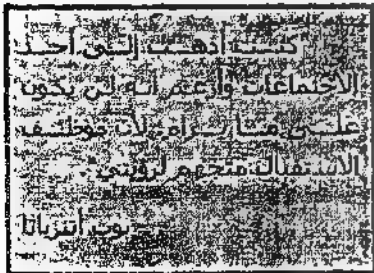 كنت أذهب إلى أحد
الاجتماعات وأزعم أنه لن يكون
على ما يرام، لأن موظف
الاستقبال متجهم لرؤيتي.